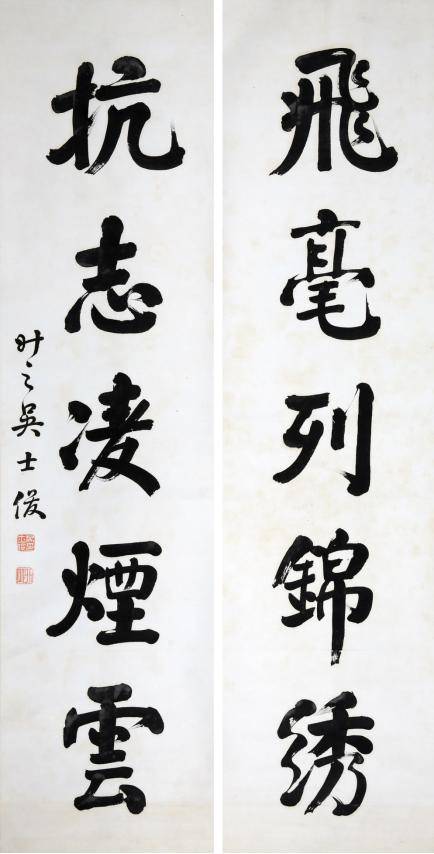 飛毫列錦绣
抗志凌煙雲
吳士俊